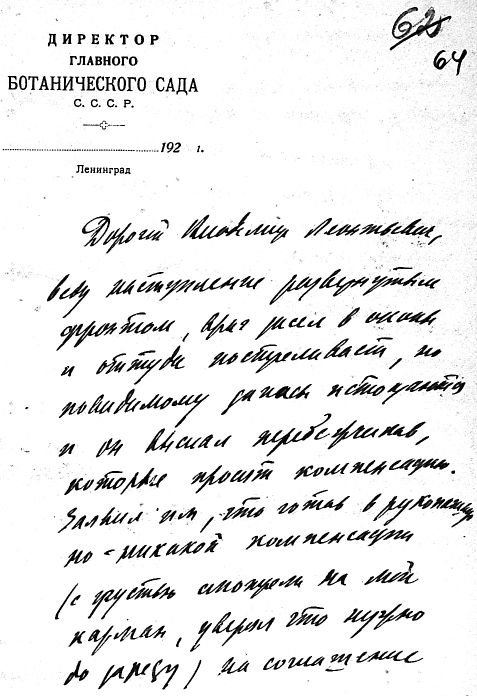 62
64
ДИРЕКТОР
ГЛАВНОГО
БОТАНИЧЕСКОГО САДА
С. С. С. Р.
192 г.
Ленинград
Дорогой Владимир Леонтьевич,
веду наступление развернутым
фронтом, враг засел в окопы
и оттуда постреливает, но
повидимому запасы истощаются
и он выслал перебежчиков,
которые просят компенсации.
Заявил им, что готов в рукопашную
но никакой компенсации
(с грустью смотрели на мой
карман, уверял что нужно
до зарезу) на соглашение